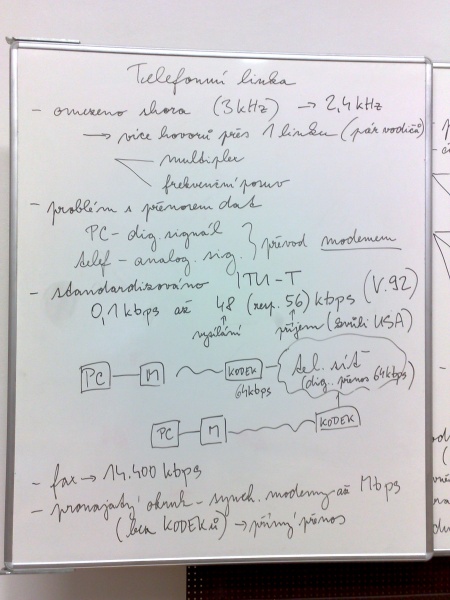 Telefonní linka
- omezeno shora (3 kHz) → 2,4 kHz
→ více hovorů přes 1 linku (pár vodičů)
multiplex
frekvenční posuv
- problém s přenosem dat
PC - dig. signál
telef - analog. sig. } převod modemem
- standardizováno ITU-T
0,1 kbps až 48 (resp. 56) kbps (V.92)
↑ vysílání ↑ příjem (kvůli USA)
PC M KODEK tel. síť
64kbps (dig. přenos 64kbps)
PC M KODEK
- fax → 14.400 kbps
- pronajatý okruh - synch. modemy až Mbps
(bez KODEKů) → přímý přenos